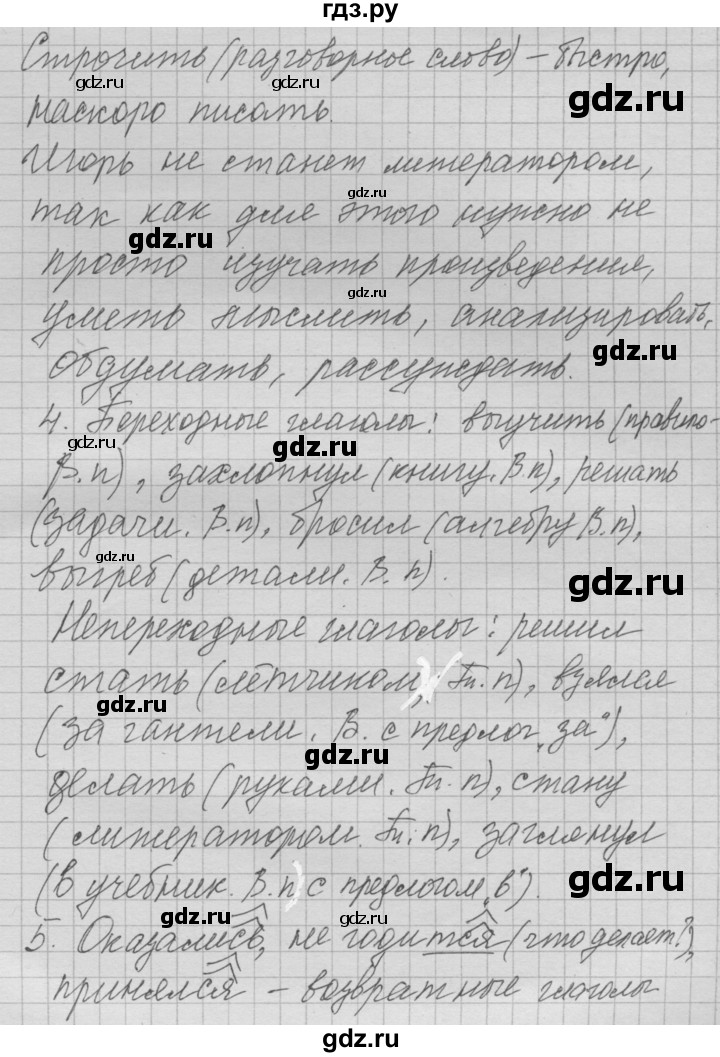 гдз.ру
Строчить (разговорное слово) – быстро,
наскоро писать.
Игорь не станет литератором,
так как для этого нужно не
просто изучать произведения,
уметь мыслить, анализировать,
обдумать, рассуждать.
4. Переходные глаголы: выучить (правило-
В.п), захлопнул (книгу. В.п), решать
(задачи. В.п), бросил (алгебру В.п),
выгреб (детали. В.п).
Непереходные глаголы: решил
стать (лётчиком, Тв.п), взялся
(за гантели. В. с предлог „за"),
делать (руками. Тв.п), стану
(литератором. Тв.п), заглянул
(в учебник. В.п с предлогом „в").
5. Оказались, не годится (что делает?),
принялся – возвратные глаголы
gdz.ru